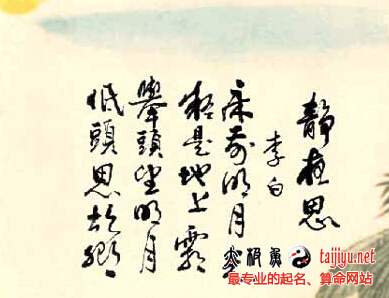 静夜思
李白
床前明月光
疑是地上霜
舉頭望明月
低頭思故鄉
taijiyu.net
最专业的起名、算命网站